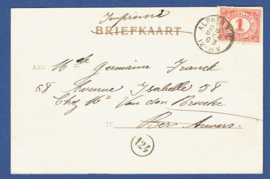 Imprimé
BRIEFKAART
1
AAN Mlle Germaine Franck
58 Avenue Isabelle 58
Chez Mr Van den Broecke
TE Anvers
124